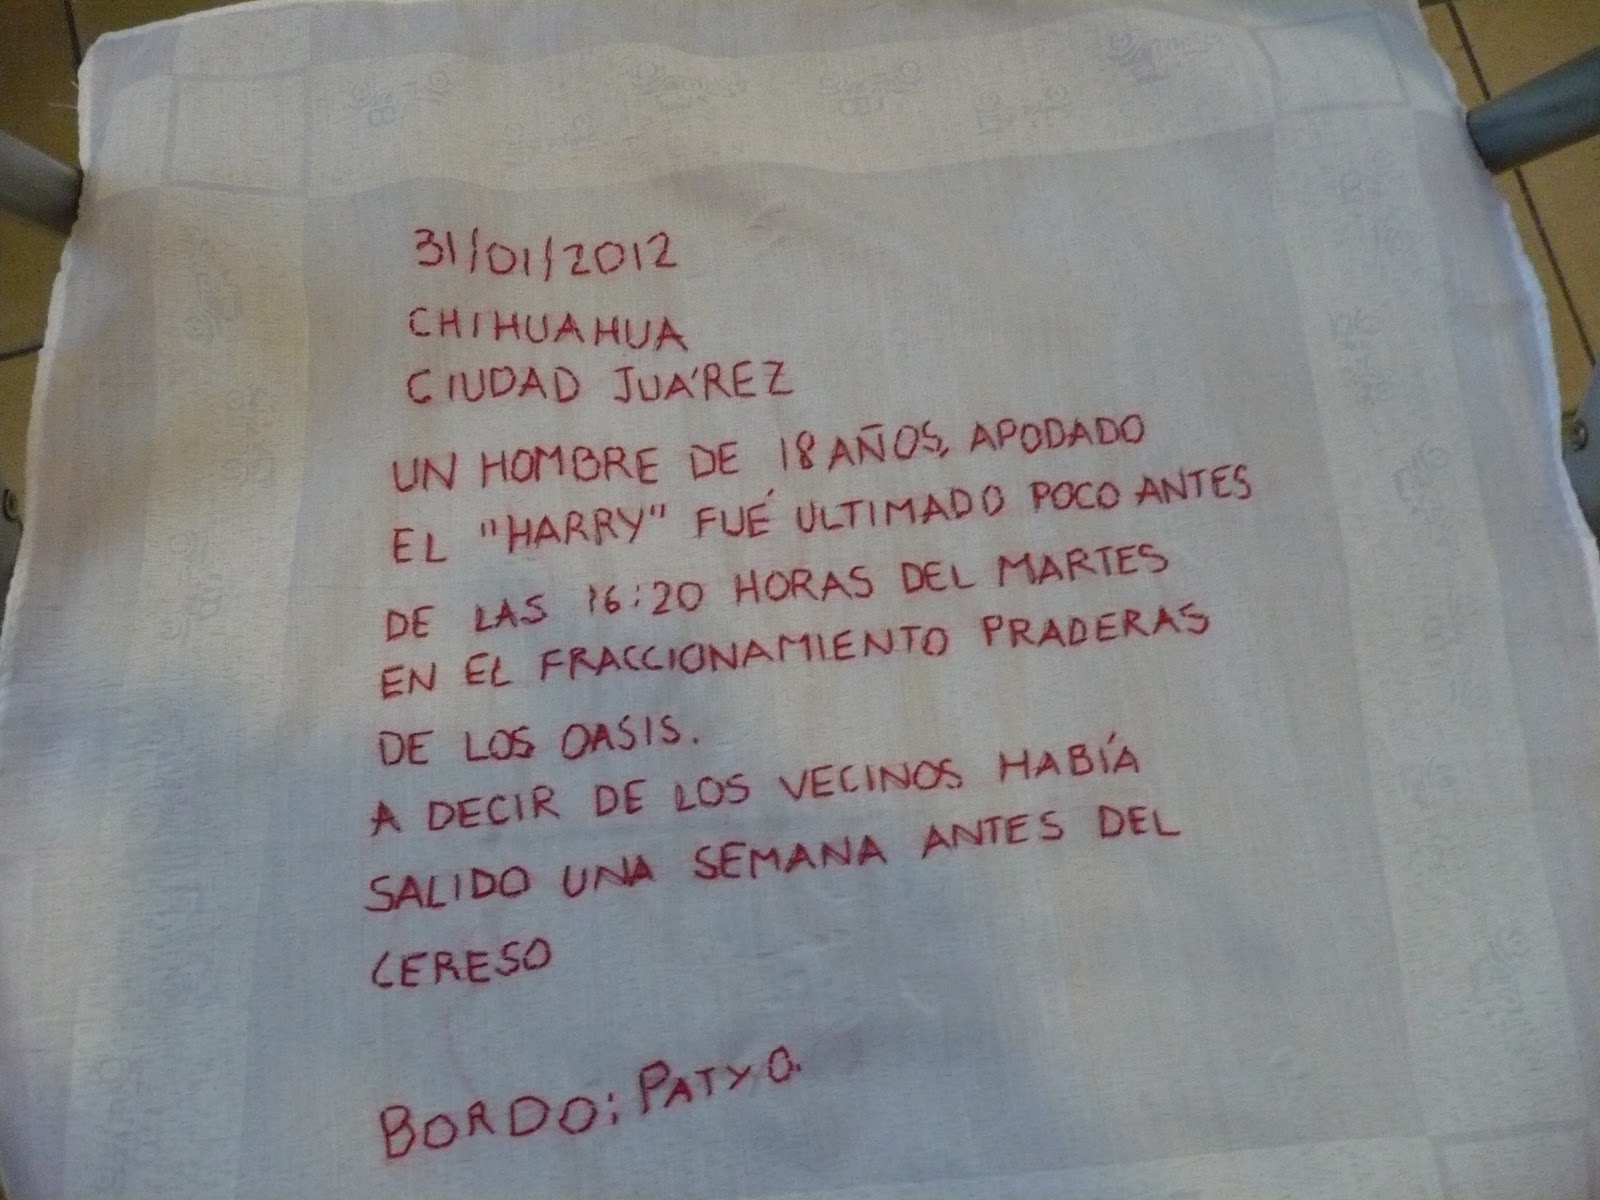 31/01/2012
CHIHUAHUA
CIUDAD JUÁREZ
UN HOMBRE DE 18 AÑOS, APODADO
EL "HARRY" FUÉ ULTIMADO POCO ANTES
DE LAS 16:20 HORAS DEL MARTES
EN EL FRACCIONAMIENTO PRADERAS
DE LOS OASIS.
A DECIR DE LOS VECINOS HABÍA
SALIDO UNA SEMANA ANTES DEL
CERESO
BORDO: PATY O.